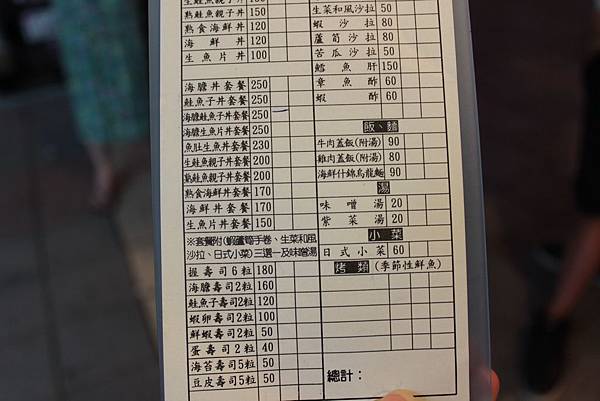 生鮭魚親子丼 150
熟鮭魚親子丼 150
熟食海鮮丼 120
海鮮丼 120
生魚片丼 100
海膽丼套餐 250
鮭魚子丼套餐 250
海膽鮭魚子丼套餐 250
海膽生魚片丼套餐 250
魚肚生魚丼套餐 230
生鮭魚親子丼套餐 200
熟鮭魚親子丼套餐 200
熟食海鮮丼套餐 170
海鮮丼套餐 170
生魚片丼套餐 150
※套餐附(蝦蘆筍手卷、生菜和風
沙拉、日式小菜)三選一及味噌湯
握壽司6粒 180
海膽壽司2粒 160
鮭魚子壽司2粒 120
蝦卵壽司2粒 100
鮮蝦壽司2粒 50
蛋壽司2粒 40
海苔壽司5粒 50
豆皮壽司5粒 50
生菜和風沙拉 50
蝦沙拉 60
蘆筍沙拉 50
苦瓜沙拉 50
鱈魚肝 150
章魚酢 60
蝦酢 60
飯、麵
牛肉蓋飯(附湯) 90
雞肉蓋飯(附湯) 80
海鮮什錦烏龍麵 90
湯
味噌湯 20
紫菜湯 20
小菜
日式小菜 60
烤類 (季節性鮮魚)
總計：